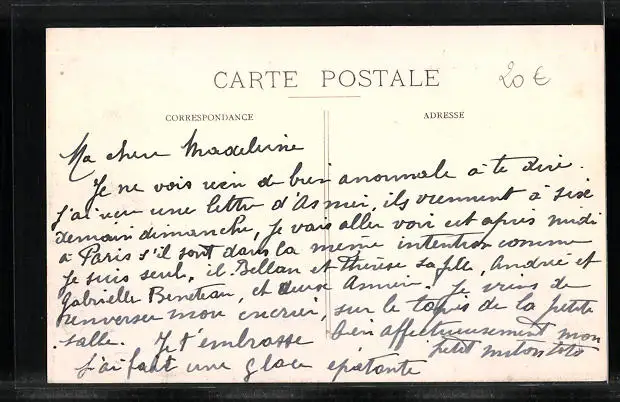 CARTE POSTALE
20 €
CORRESPONDANCE
ADRESSE
Ma chere Madeleine
Je ne vois rien de bien anormale à te dire.
j'ai reçu une lettre d'Asnier, ils viennent à six
demain dimanche, Je vais aller voir cet apres midi
à Paris s'il sont dans la même intention comme
je suis seul, il Bellan et Thérèse sa fille, André et
Gabrielle Beneteau, et Asnier. Je viens de
renverser mon encrier, sur le tapis de la petite
salle. Je t'embrasse bien affectueusement mon
petit
j'ai fait une glace épatante